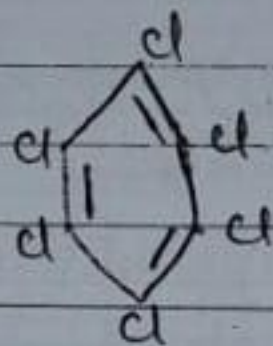 Cl
Cl Cl
Cl Cl
Cl